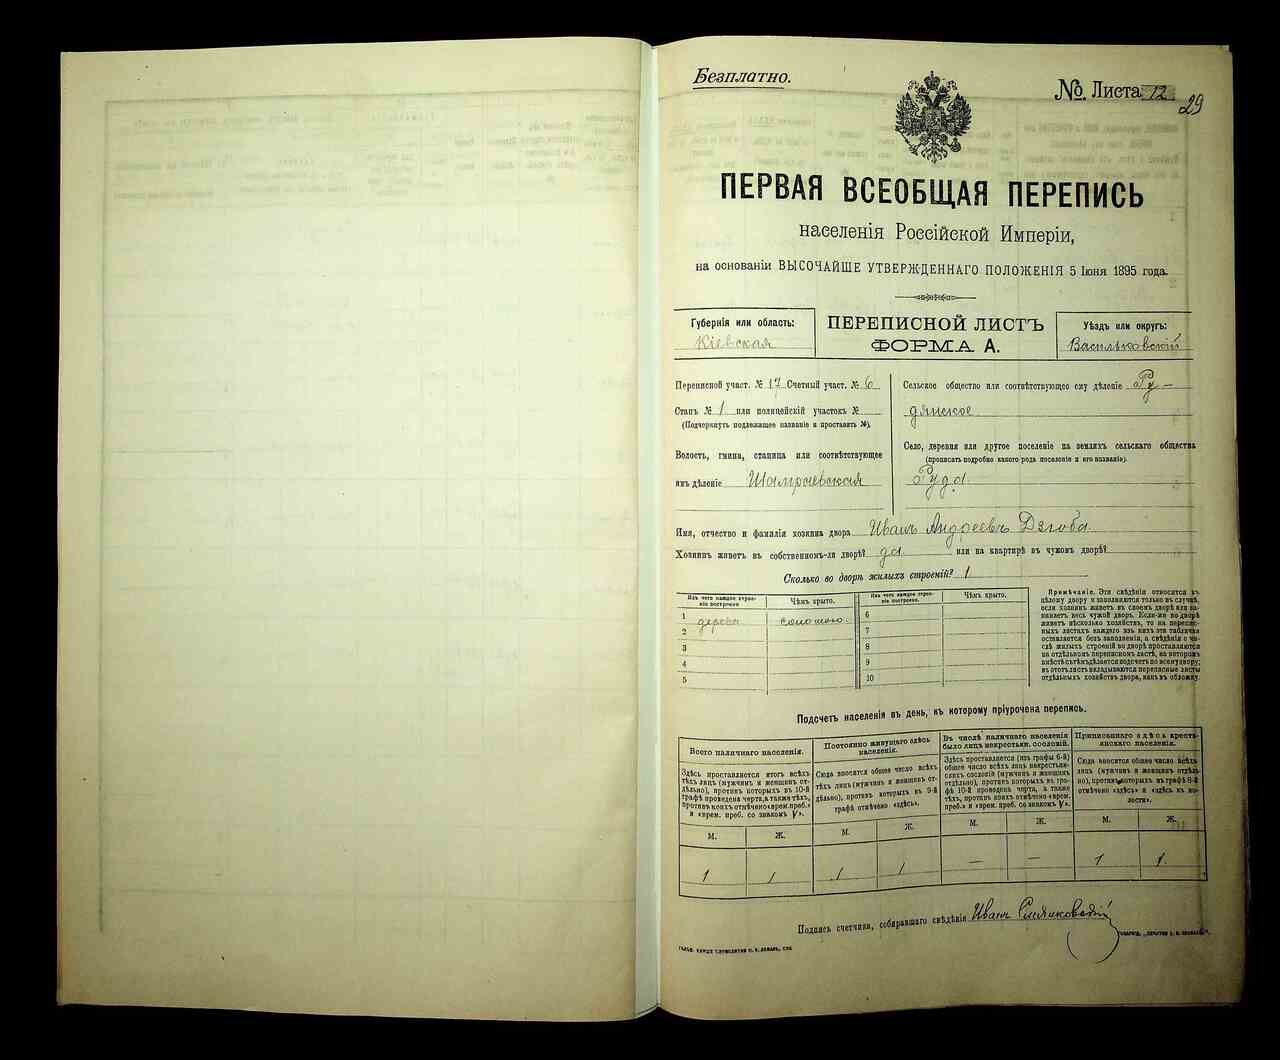 Безплатно.
№ Листа 12
29
ПЕРВАЯ ВСЕОБЩАЯ ПЕРЕПИСЬ
населенія Россійской Имперіи,
на основаніи ВЫСОЧАЙШЕ УТВЕРЖДЕННАГО ПОЛОЖЕНІЯ 5 Іюня 1895 года.
Губернія или область:
Кіевская
ПЕРЕПИСНОЙ ЛИСТЪ
ФОРМА А.
Уѣздъ или округъ:
Васильковскій
Переписной участ. № 17 Счетный участ. № 6
Станъ № 1 или полицейскій участокъ №
(Подчеркнуть подлежащее названіе и проставить №).
Волость, гмина, станица или соотвѣтствующее
имъ дѣленіе Шамраевская
Сельское общество или соотвѣтствующее ему дѣленіе Ру-
дянское
Село, деревня или другое поселеніе на земляхъ сельскаго общества
(прописать подробно какого рода поселеніе и его названіе).
Руда
Имя, отчество и фамилія хозяина двора Иванъ Андреевъ Дзюба
Хозяинъ живетъ въ собственномъ-ли дворѣ? да или на квартирѣ въ чужомъ дворѣ?
Сколько во дворѣ жилыхъ строеній? 1
Изъ чего каждое строе-
ніе построено
Чѣмъ крыто.
1 дерева соломою.
2
3
4
5
Изъ чего каждое строе-
ніе построено.
Чѣмъ крыто.
6
7
8
9
10
Примѣчаніе. Эти свѣдѣнія относятся къ
цѣлому двору и заполняются только въ случаѣ,
если хозяинъ живетъ въ своемъ дворѣ или за-
нимаетъ весь чужой дворъ. Если-же во дворѣ
живетъ нѣсколько хозяйствъ, то на перепис-
ныхъ листахъ каждаго изъ нихъ эта табличка
оставляется безъ заполненія, а свѣдѣнія о чи-
слѣ жилыхъ строеній во дворѣ проставляются
на отдѣльномъ переписномъ листѣ, на которомъ
вмѣстѣ съ тѣмъ дѣлается подсчетъ по всему двору;
въ этотъ листъ вкладываются переписные листы
отдѣльныхъ хозяйствъ двора, какъ въ обложку.
Подсчетъ населенія въ день, къ которому пріурочена перепись.
Всего наличнаго населенія.
Здѣсь проставляется итогъ всѣхъ
тѣхъ лицъ (мужчинъ и женщинъ от-
дѣльно), противъ которыхъ въ 10-й
графѣ проведена черта, а также тѣхъ,
противъ коихъ отмѣчено «врем. преб.»
и «врем. преб. со знакомъ V».
М. Ж.
1 1
Постоянно живущаго здѣсь
населенія.
Сюда вносятся общее число всѣхъ
тѣхъ лицъ (мужчинъ и женщинъ от-
дѣльно), противъ которыхъ въ 9-й
графѣ отмѣчено «здѣсь».
М. Ж.
1 1
Въ числѣ наличнаго населенія
было лицъ некрестьян. сословій.
Здѣсь проставляется (изъ графы 6-й)
общее число всѣхъ лицъ некрестьян-
скихъ сословій (мужчинъ и женщинъ
отдѣльно), противъ которыхъ въ гра-
фѣ 10-й проведена черта, а также
тѣхъ, противъ коихъ отмѣчено «врем.
преб.» и «врем. преб. со знакомъ V».
М. Ж.
— —
Приписаннаго здѣсь кресть-
янскаго населенія.
Сюда вносятся общее число всѣхъ
лицъ (мужчинъ и женщинъ отдѣль-
но), противъ которыхъ въ графѣ 8-й
отмѣчено «здѣсь» и «здѣсь къ во-
лости».
М. Ж.
1 1
Подпись счетчика, собиравшаго свѣдѣнія Иванъ